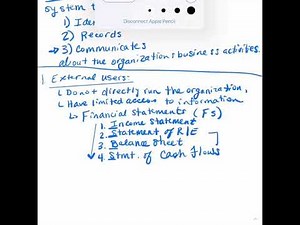 System
Disconnect Apple Pencil
1) Ide
2) Records
→ 3) Communicates
about the organization's business activities
External users:
Do not directly run the organization,
Have limited access to information
↳ Financial Statements (FS)
1. Income Statement
2. Statement of R/E
3. Balance Sheet
4. Stmt. of Cash Flows